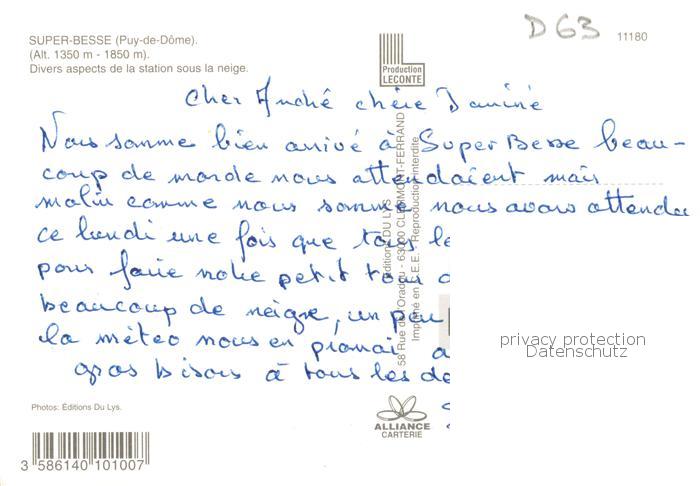 D 63
11180
SUPER-BESSE (Puy-de-Dôme).
(Alt. 1350 m - 1850 m).
Divers aspects de la station sous la neige.
Production
LECONTE
Cher André chère Janine
Nous somme bien arrivé à Super Besse beau-
coup de monde nous attendaient mais
malin comme nous somme nous avons attendu
ce lundi une fois que tous le
pour faire notre petit tour
beaucoup de neigne, un peu
la méteo nous en promai a
gros bisous à tous les de
Éditions DU LYS
58 Rue de l'Oradou - 63000 CLERMONT-FERRAND
Imprimé en C.E.E. - Reproduction interdite
privacy protection
Datenschutz
Photos: Éditions Du Lys.
ALLIANCE
CARTERIE
3 586140 101007